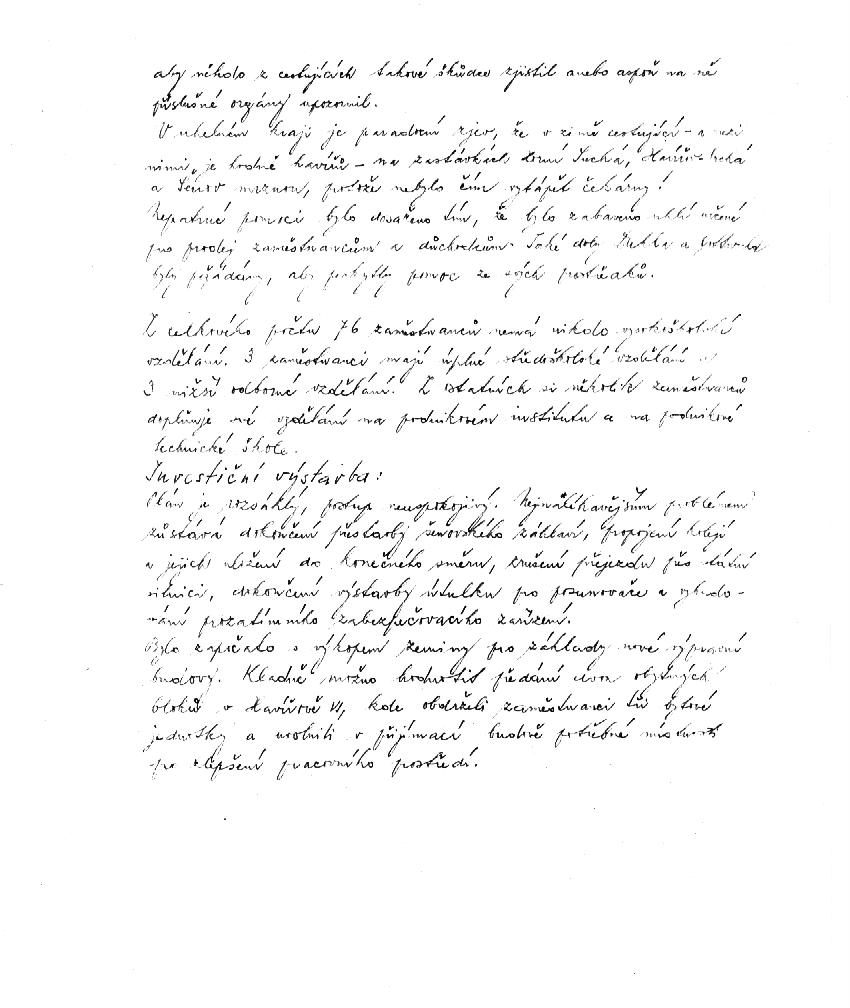 aby někdo z cestujících takové škůdce zjistil anebo aspoň na ně
příslušné orgány upozornil.
V uhelném kraji je paradoxní zjev, že v zimě cestující - a mezi
nimi, je hodně havířů - na zastávkách Horní Suchá,
a Šenov mrznou, protože nebylo čím vytápět čekárny!
Nepatrné pomoci bylo dosaženo tím, že bylo zabaveno uhlí určené
pro prodej zaměstnancům a důchodcům. Také doly a
byly požádány, aby poskytly pomoc ze svých prostředků.
Z celkového počtu 76 zaměstnanců nemá nikdo vysokoškolské
vzdělání. 3 zaměstnanci mají úplné středoškolské vzdělání a
3 nižší odborné vzdělání. Z ostatních si několik zaměstnanců
doplňuje své vzdělání na podnikovém institutu a na podnikové
technické škole.
Investiční výstavba:
Plán je rozsáhlý, postup neuspokojivý. Nejnaléhavějším problémem
zůstává dokončení přestavby šenovského záhlaví, propojení kolejí
a jejich uložení do konečného směru, zrušení přejezdu přes státní
silnici, dokončení výstavby útulku pro posunovače a vybudo-
vání prozatímního zabezpečovacího zařízení.
Bylo započato s výkopem zeminy pro základy nové výpravní
budovy. Kladně možno hodnotit předání dvou obytných
bloků v Havířově VI, kde obdrželi zaměstnanci tři bytové
jednotky a uvolnili v přijímací budově potřebné místnosti
pro zlepšení pracovního prostředí.